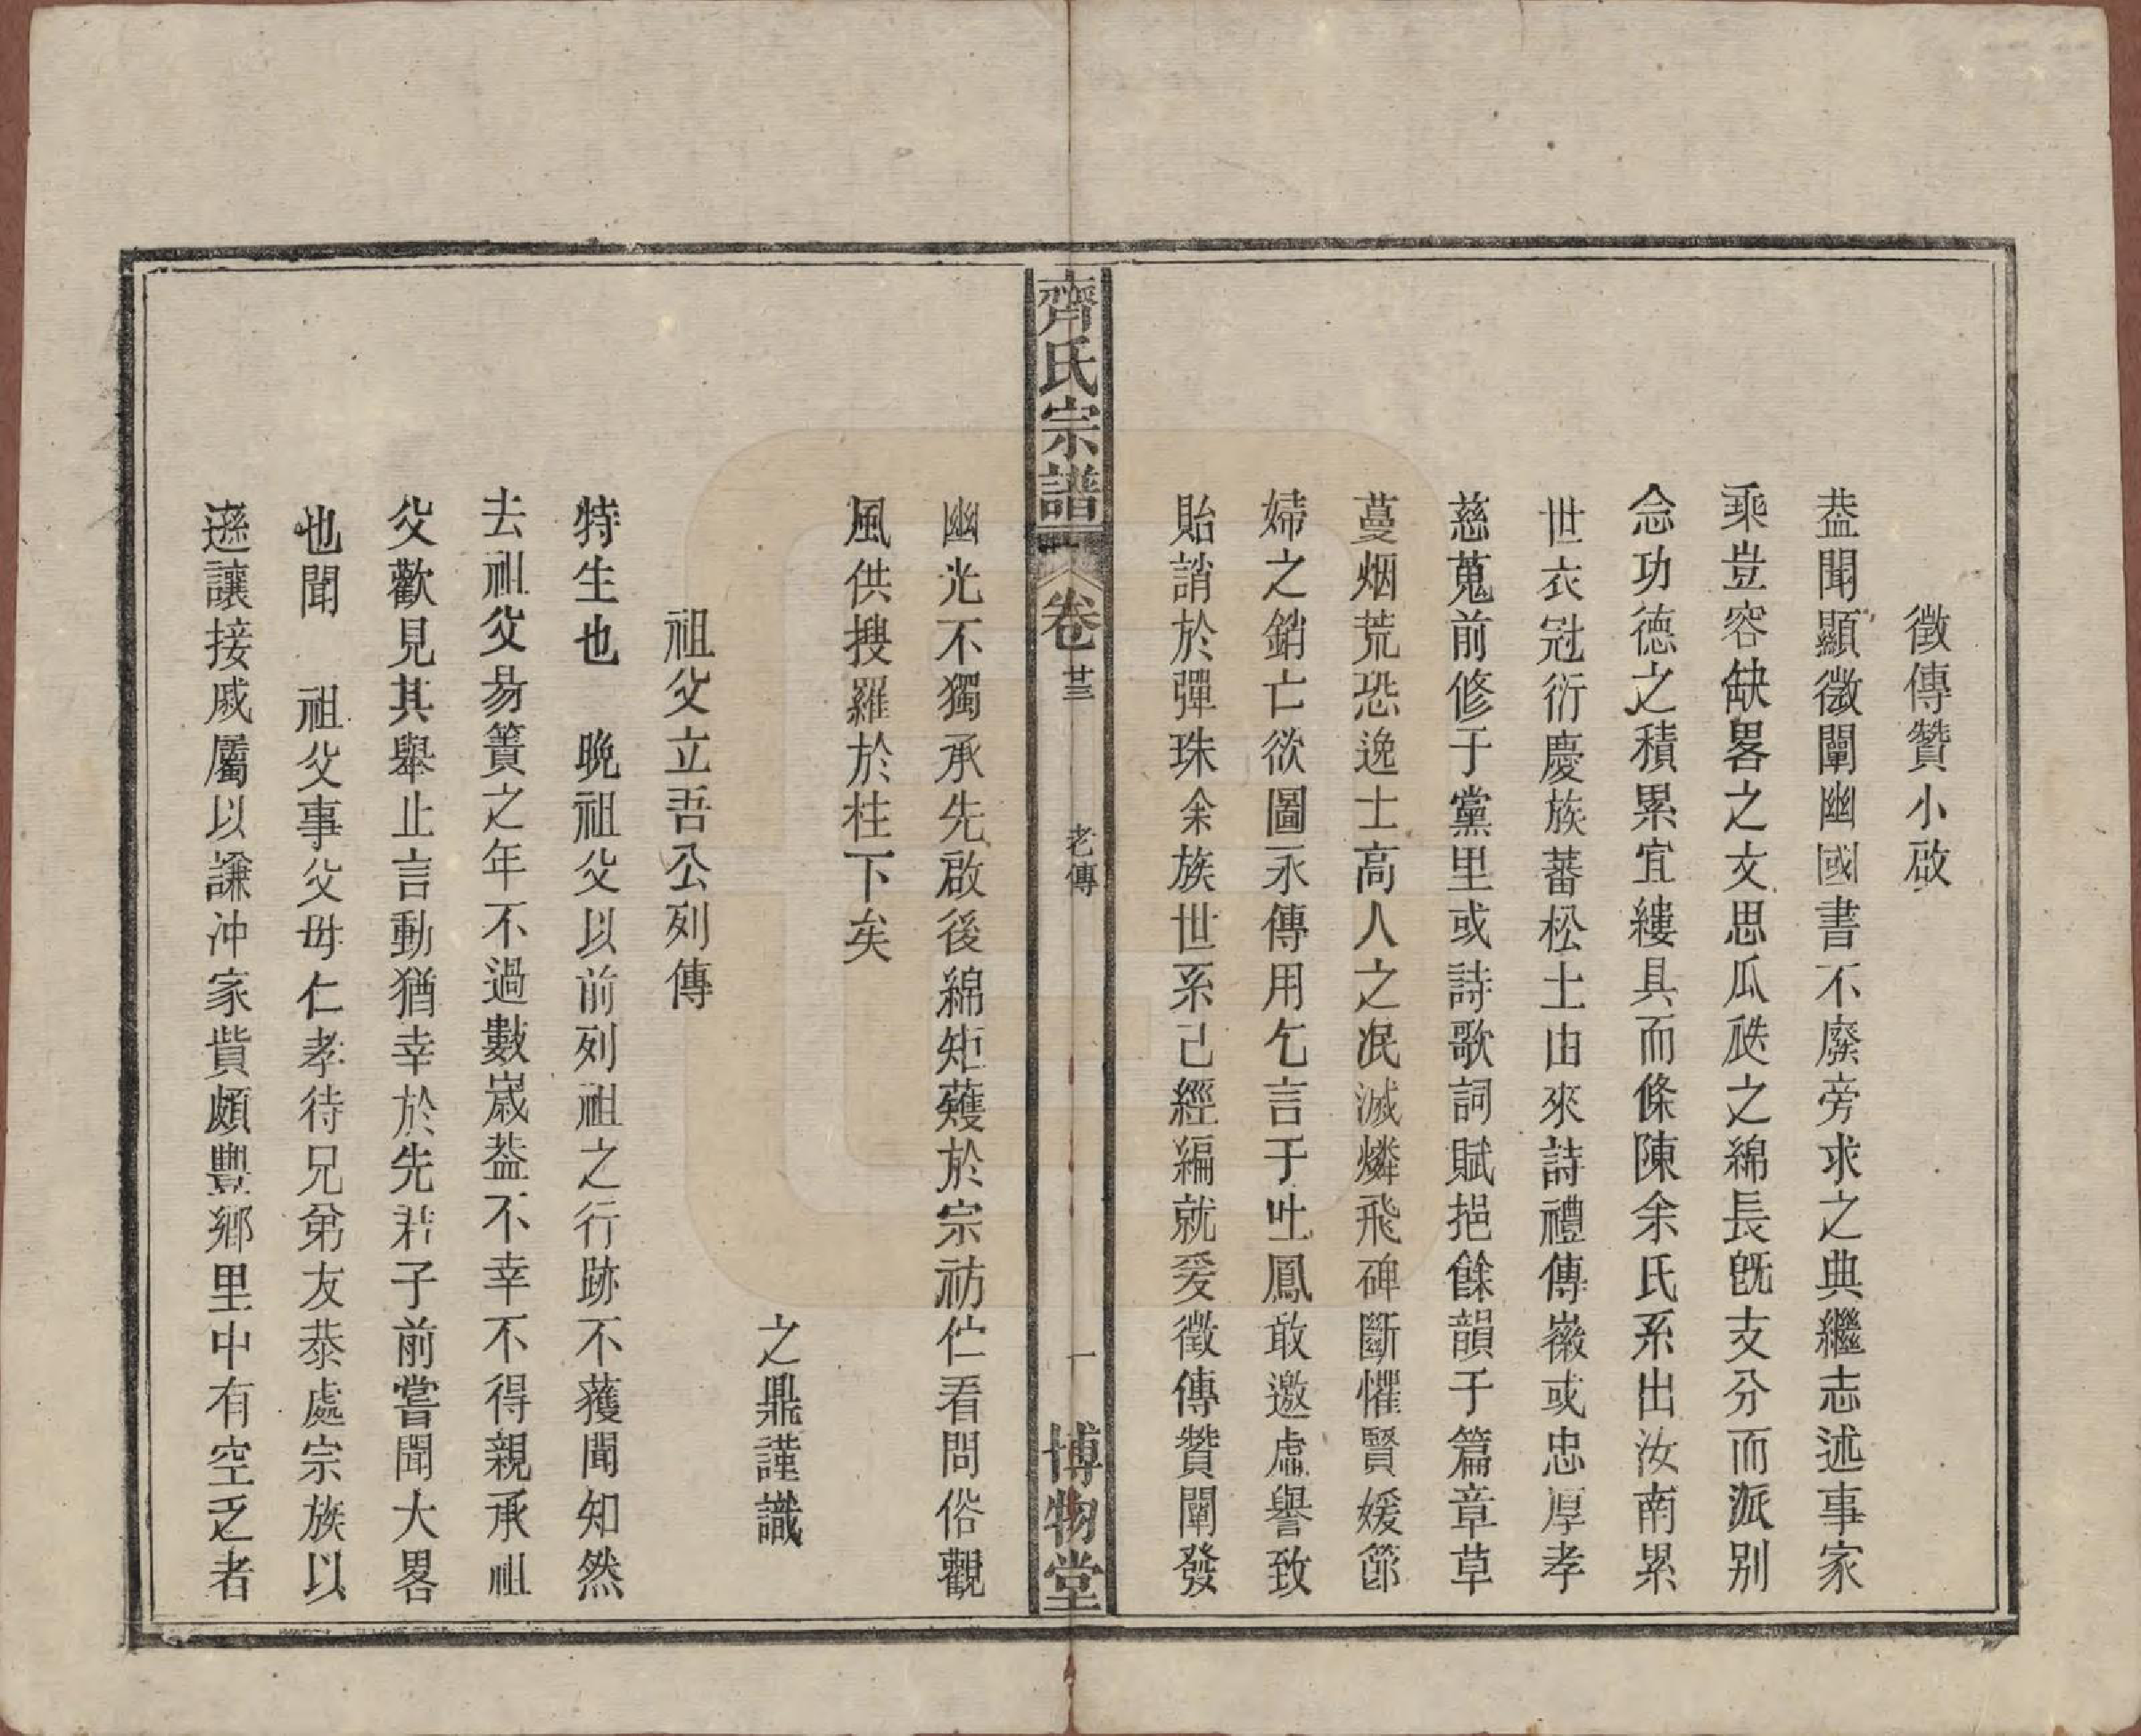 徵傳贊小啟
葢聞顯微闡幽國書不廢旁求之典繼志述事家
乘豈容缺畧之文思瓜瓞之綿長旣支分而派別
念功德之積累宜縷具而條陳余氏系出汝南累
世衣冠衍慶族蕃松土由來詩禮傳徽或忠厚孝
慈蒐前修于黨里或詩歌詞賦挹餘韻于篇章草
蔓烟荒恐逸士高人之泯滅燐飛碑斷懼賢媛節
婦之銷亡欲圖永傳用乞言于吐鳳敢邀虛譽致
貽誚於彈珠余族世系己經編就爰徵傳贊闡發
齊氏宗譜
卷廿三
老傳
一
博物堂
幽光不獨承先啟後綿矩蒦於宗祊伫看問俗觀
風供搜羅於柱下矣
之鼎謹識
祖父立吾公列傳
特生也 晩祖父以前列祖之行跡不獲聞知然
去祖父易簀之年不過數歲葢不幸不得親承祖
父歡見其舉止言動猶幸於先君子前嘗聞大畧
也聞 祖父事父毋仁孝待兄弟友恭處宗族以
遜讓接戚屬以謙沖家貲頗豐鄉里中有空乏者